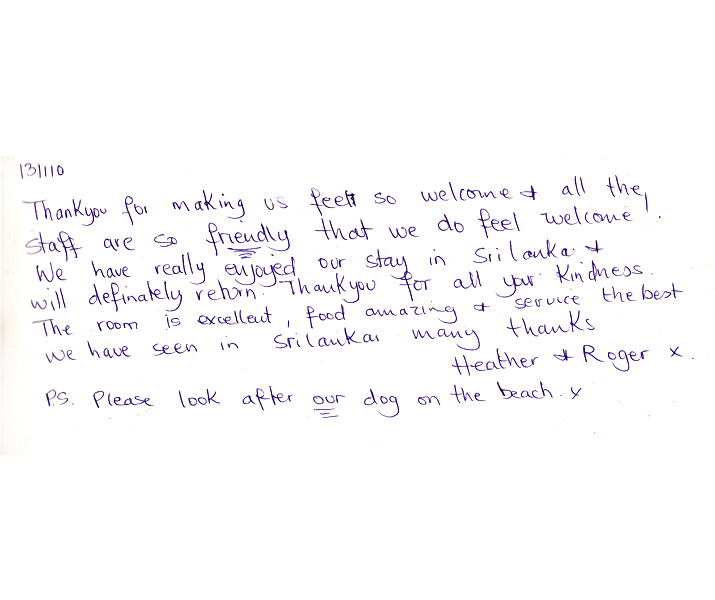 13/1/10
Thankyou for making us feel so welcome & all the,
staff are so friendly that we do feel welcome!.
We have really enjoyed our stay in Srilanka &
will definately return. Thankyou for all your Kindness.
The room is excellent, food amazing & service the best
we have seen in Srilanka. many thanks
Heather & Roger x.
P.S. Please look after our dog on the beach. x